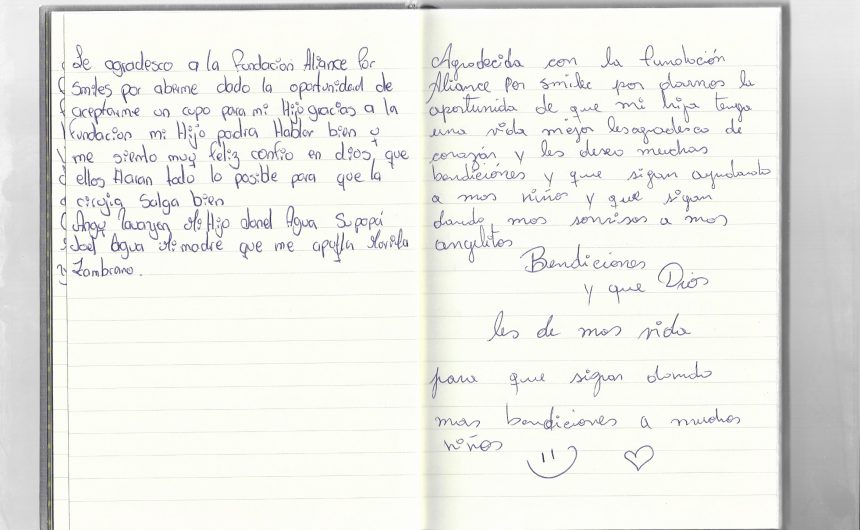 Le agradesco a la Fundacion Aliance For
Smiles por aberme dado la oportunidad de
aceptarme un cupo para mi Hijo gracias a la
fundacion mi Hijo podra Hablar bien y
me siento muy feliz confio en dios, que
ellos Haran todo lo posible para que la
cirujia Salga bien
Hijo Agua Su papá
Joel Agua Mi madre que me apolla
Zambrano.
Agradecida con la fundación
Aliance For smile por darnos la
oportunida de que mi hija tenga
una vida mejor les agradesco de
corazón y les deseo muchas
bendiciones y que sigan ayudando
a mas niños y que sigan
dando mas sonrisas a mas
angelitos
Bendiciones
y que Dios
les de mas vida
para que sigan dando
mas bendiciones a muchos
niños